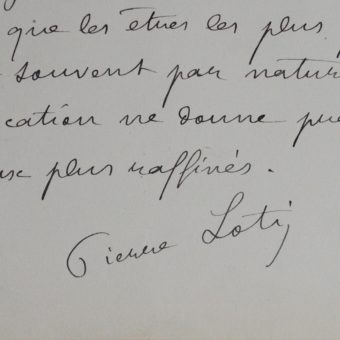 que les êtres les plus
souvent par natur
cation ne donne que
plus raffinés.
Pierre Loti